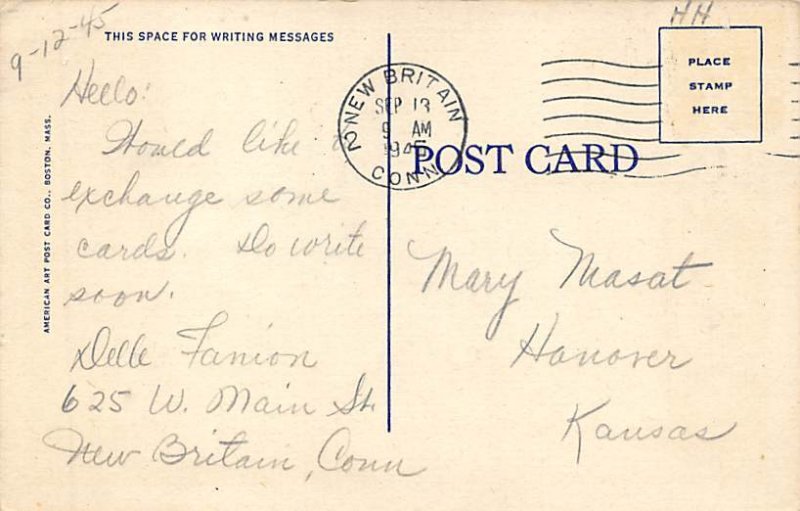 9-12-45
THIS SPACE FOR WRITING MESSAGES
Hello:
Would like to
exchange some
cards. Do write
soon.
Delle Fanion
625 W. Main St.
New Britain, Conn
AMERICAN ART POST CARD CO., BOSTON, MASS.
NEW BRITAIN 2
SEP 13
9 AM
1945
CONN
POST CARD
HH
PLACE
STAMP
HERE
Mary Masat
Hanover
Kansas